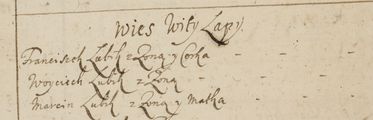 Wies Wity Lapy.
Franciszek Lubik z Zoną y Corka
Woyciech Lubik z Zoną
Marcin Lubik z Zoną y Matka